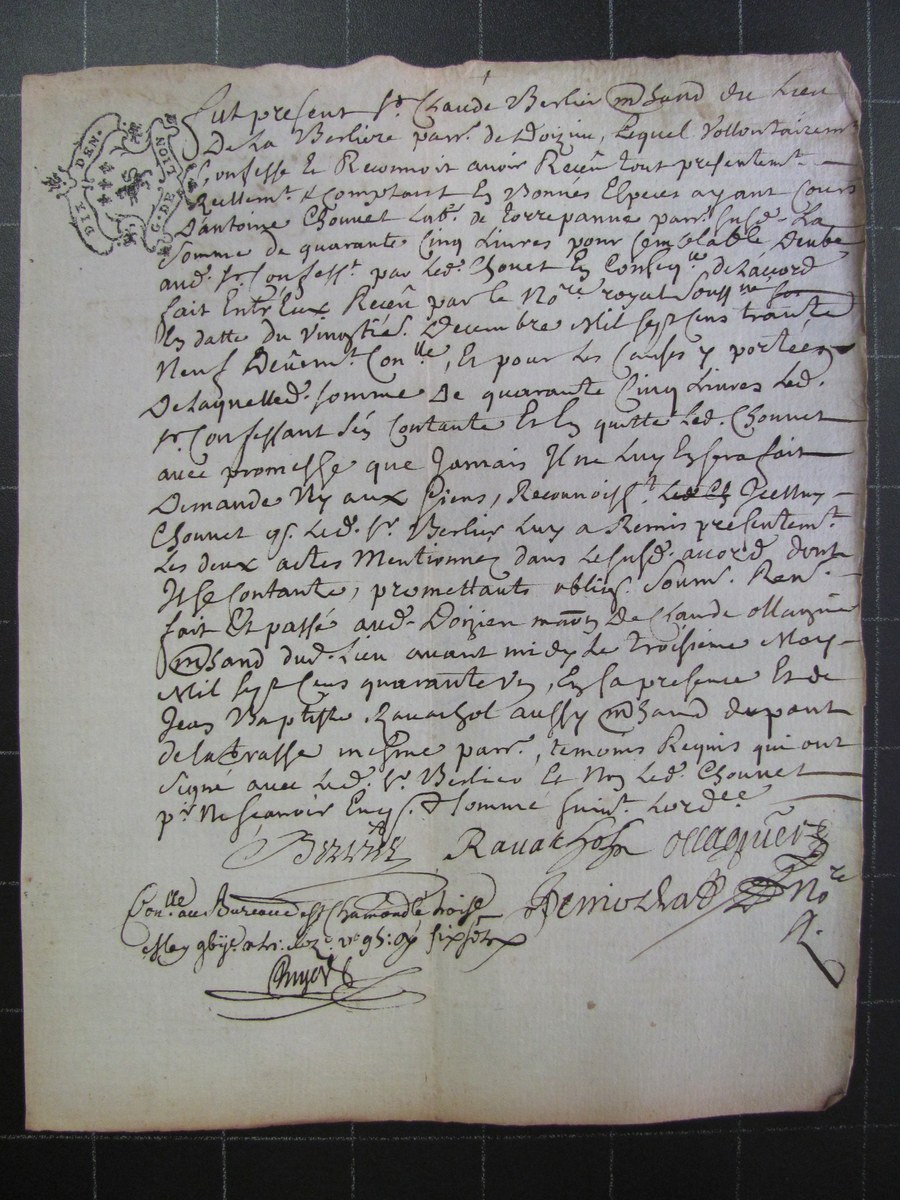 DIX DEN.
G. DE LION
fut present Sr. Claude Berlier mchand du Lieu
De La Berliere parr. de Doizieu, Lequel Vollontairemt
Confesse Et Reconnoit avoir Receu tout presentemt.
Réellemt. & Comptant En Bonnes Especes ayant Cours
D'antoine Chouvet Lab. de torrepanne parr. susd. La
Somme de quarante Cinq Livres pour semblable Deube
aud. Sr. Confesst. par Led. Chovet En Conseq.ce De Laccord
fait Entr'Eux Receu par le No.re royal Souss.né
En datte du Vingtié. Decembre Mil sept Cens trante
Neuf Deüemt. Con.lle, Et pour Les Causes y portées
De Laquelled. somme De quarante Cinq Livres Led.
Sr. Confessant s'én Contante Et En quitte Led. Chouvet
avec promesse que Jamais Il ne Luy En sera fait
Demande Ny aux siens, Reconnoisst. Led. Ch Jcelluy
Chouvet q. Led. Sr. Berlier Luy a Remis presentemt.
Les deux actes Mentionnez dans Le susd. accord dont
Il se Contante, promettants oblig. Soum. Ren.
fait Et passé aud. Doizieu maon De Claude Magnin
mchand dud. Lieu avant midy Le troisieme May
Mil sept Cens quarante Un, En sa presence Et de
Jean Baptiste Ravachol aussy mchand du pont
de la trasse mesme parr., temoins Requis qui ont
Signé avec Led. Sr. Berlier Et Non Led. Chouvet
pr. Ne scavoir Enquis & sommé suivt. Lord.ce
Berlier Ravachol
No.re
R.
Con.lle au Bureau de St Chamond le troise
May